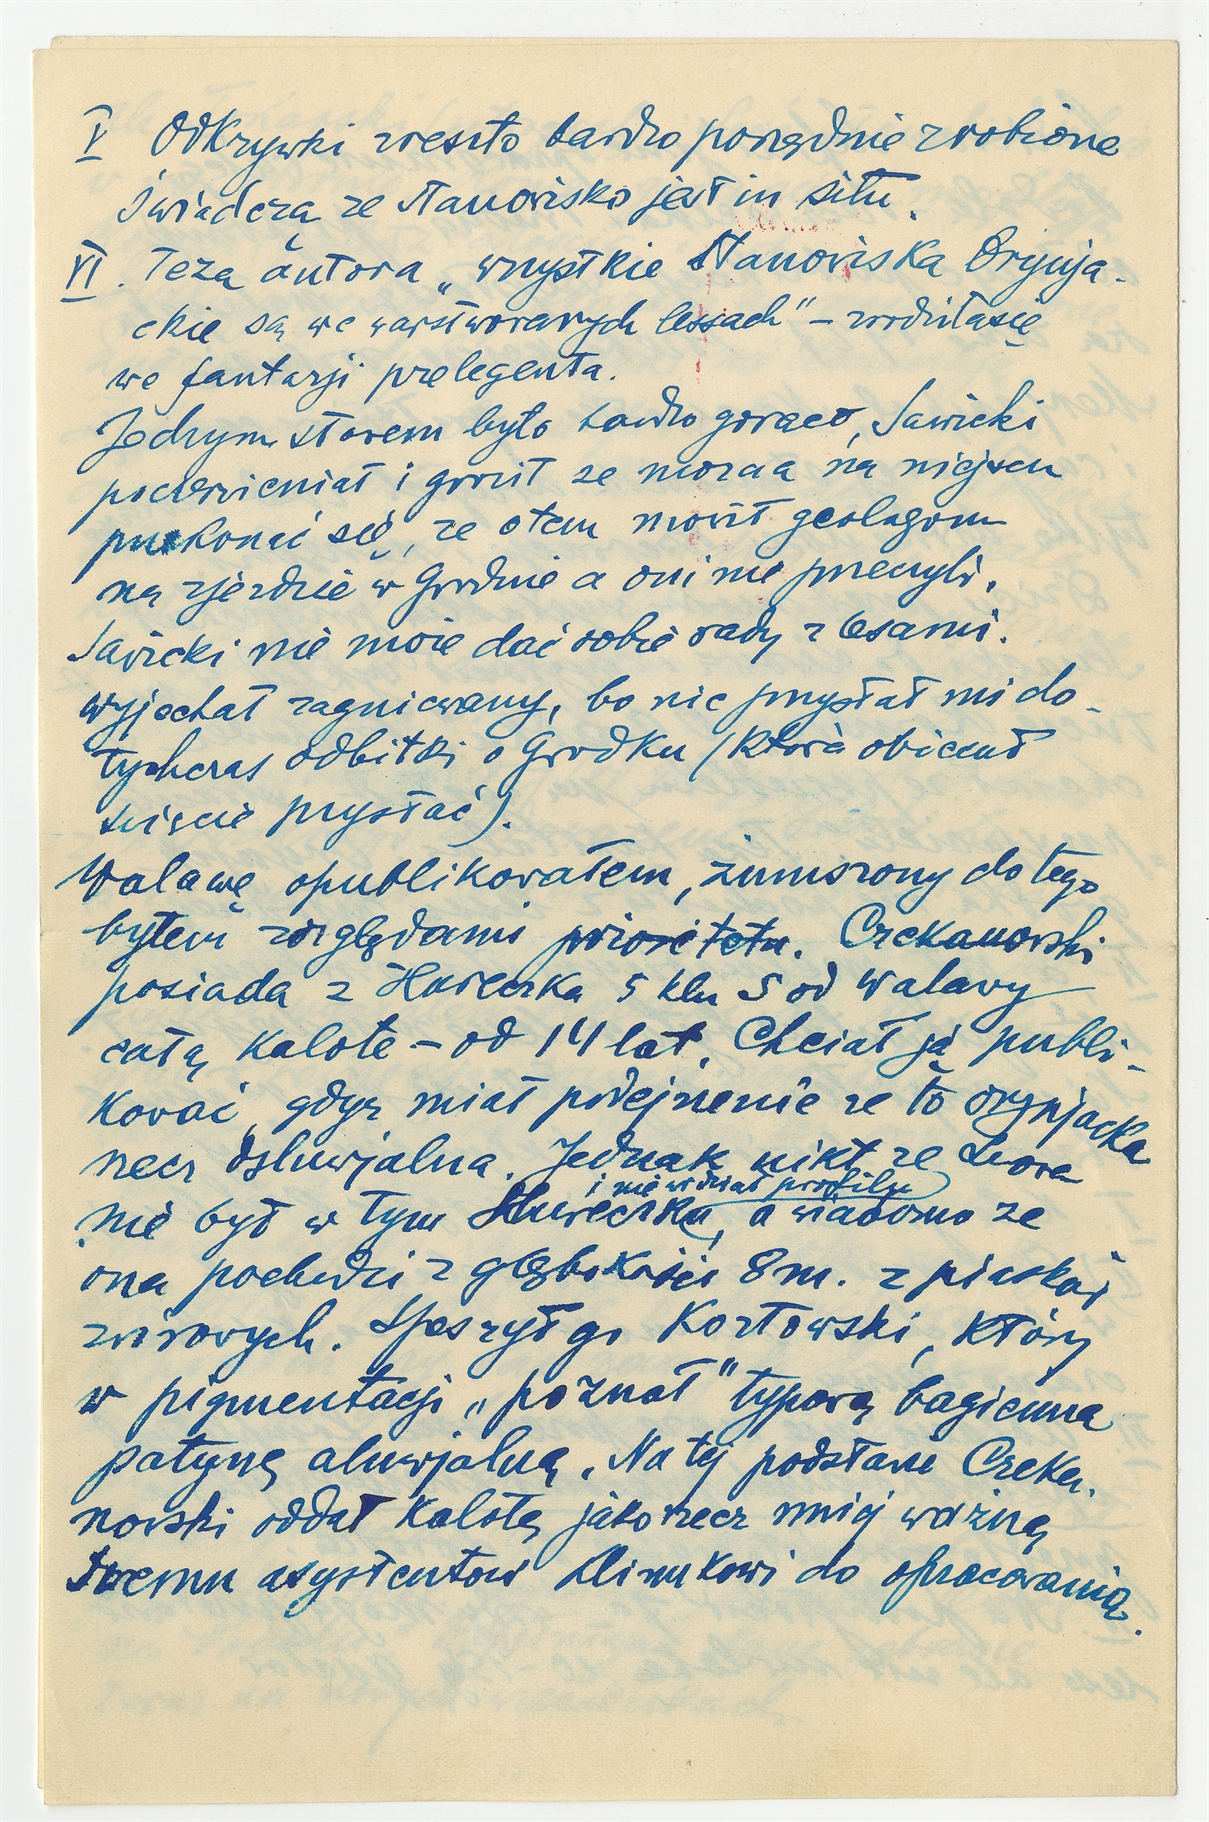 V Odkrywki zresztą bardzo porządnie zrobione
świadczą ze stanowisko jest in situ.
VI. Teza autora „wszystkie stanowiska Orynja-
ckie są we warstwowanych lessach" – zrodziła się
we fantazji prelegenta.
Jednym słowem było bardzo gorąco, Sawicki
poczerwieniał i groził ze mozna na miejscu
przekonać się, ze otem mówił geologom
na zjeździe w Grodnie a oni nie przeczyli.
Sawicki nie moze dać sobie rady z lesami.
Wyjechał zagniewany, bo nie przysłał mi do-
tychczas odbitki o Gródku (którą obiecał
święcie przysłać).
Walawę opublikowałem, zmuszony do tego
byłem względami prioritetu. Czekanowski
posiada z Hureczka 5 klm S od Walawy
całą kalotę – od 14 lat. Chciał ją publi-
kować, gdyz miał podejrzenie ze to orynjacka
rzecz dyluwjalna. Jednak nikt ze Lwowa
i nie widział profilu
nie był w tym Hureczku, a wiadomo ze
ona pochodzi z głębokości 8 m. z piasków
zwirowych. Speszył go Kozłowski, który
w pigmentacji „poznał" typową bagienną
patynę aluwjalną. Na tej podstawie Czeka-
nowski oddał kalotę jako rzecz mniej ważną
swemu asystentowi Klimkowi do opracowania.